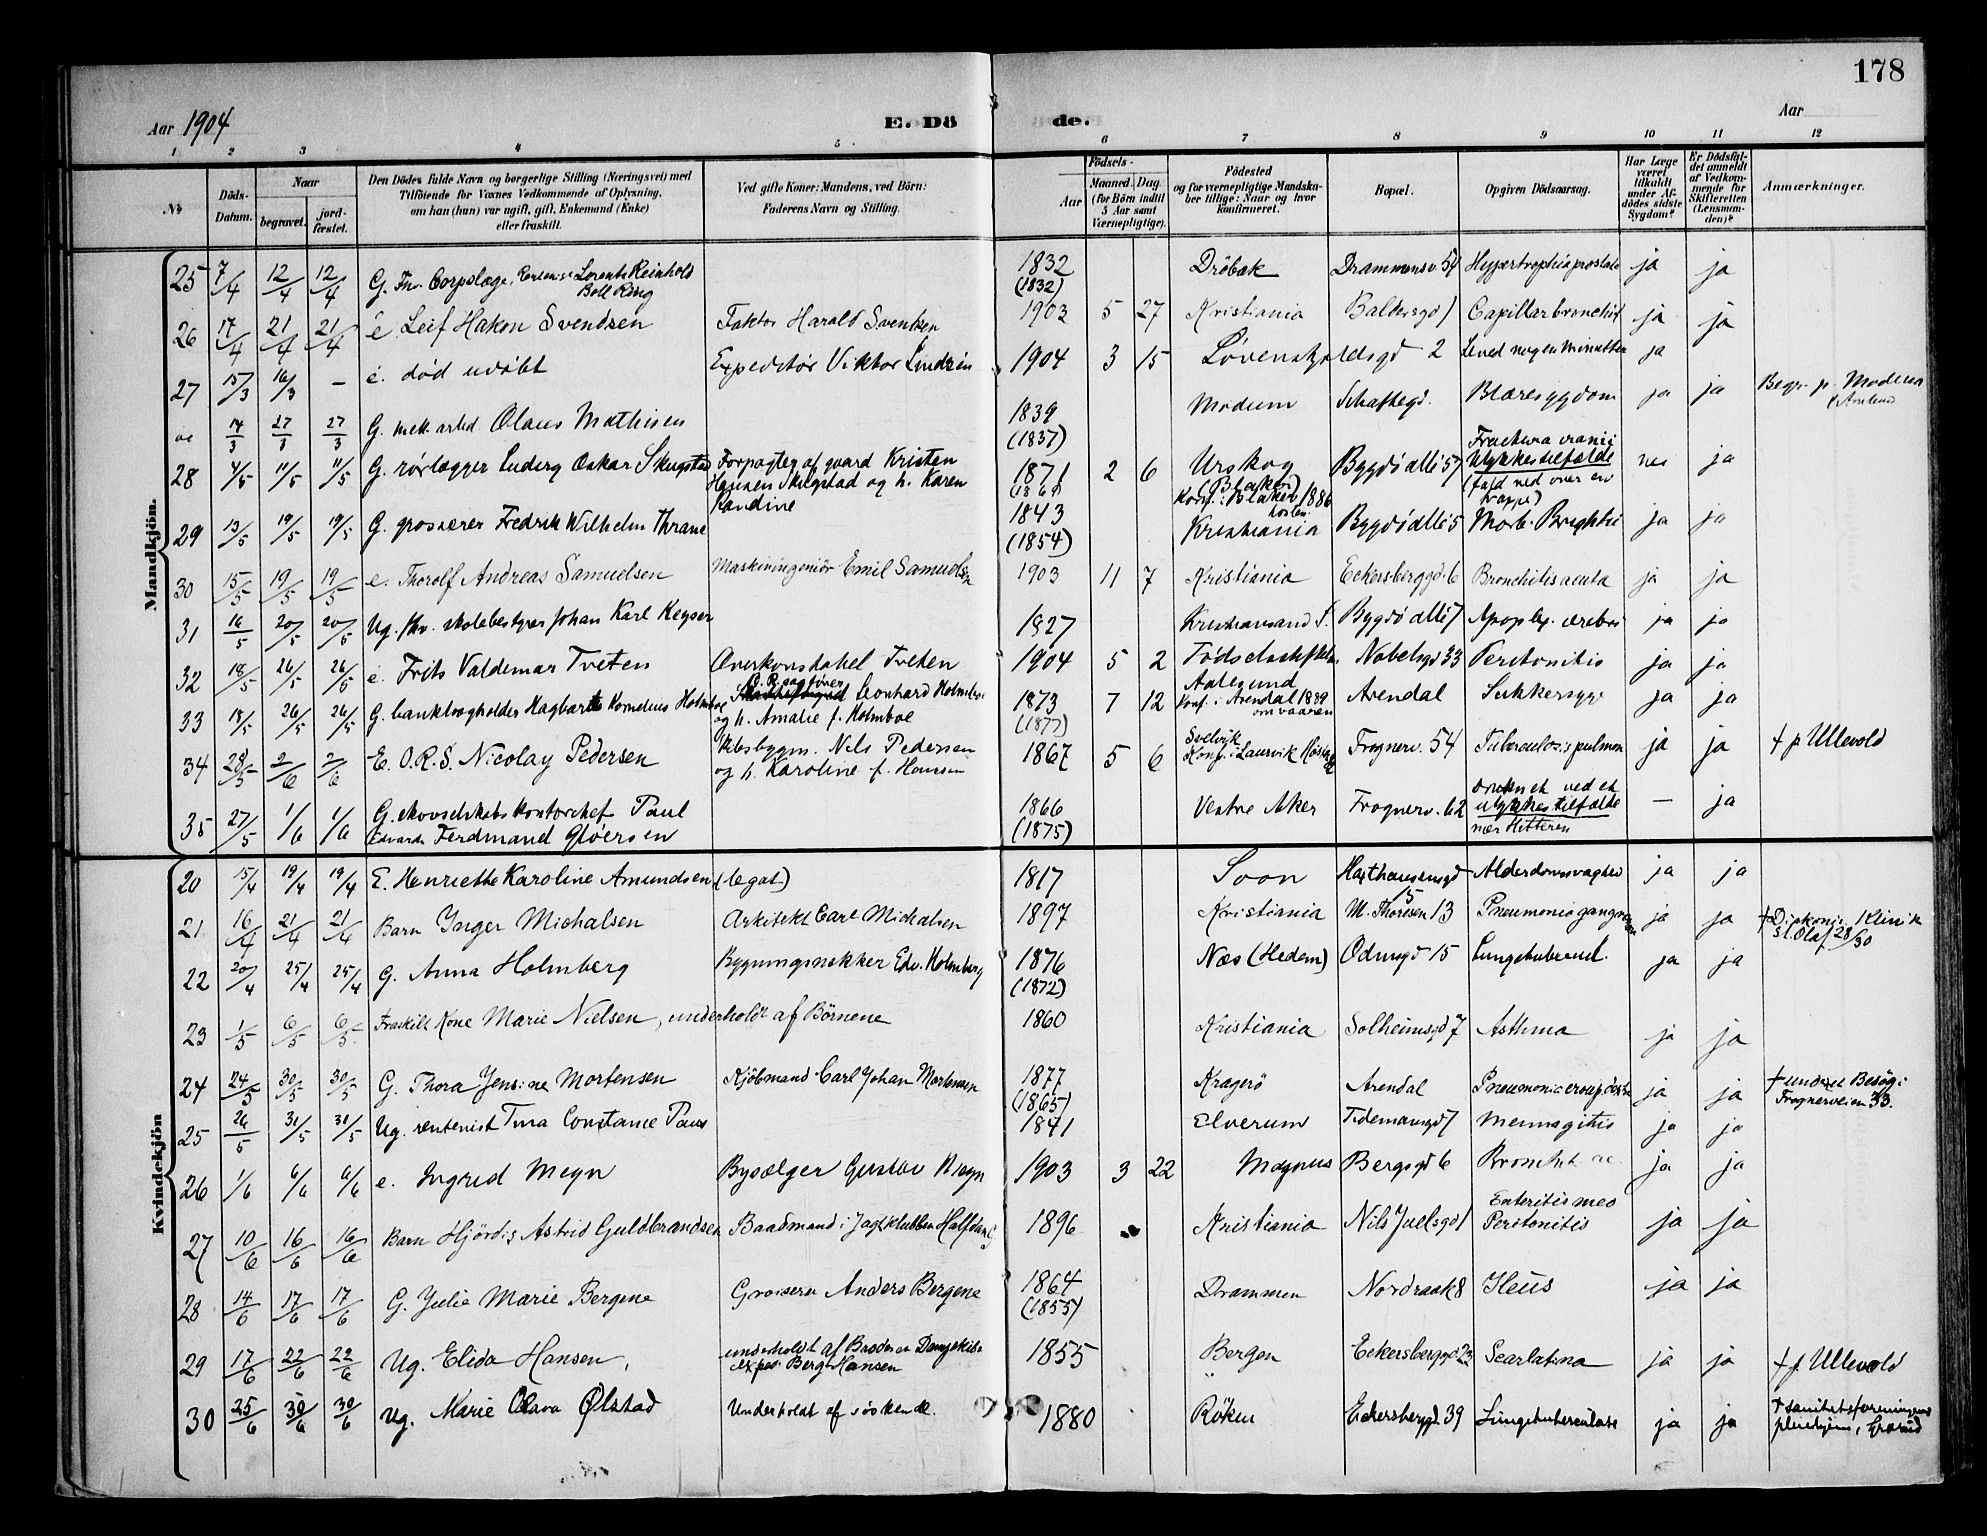 178
Aar 1904
E. Dö
de.
Aar
1 2 3 4 5 6 7 8 9 10 11 12
No
Döds-Datum.
Naar
begravet.
jordfæstet.
Den Dödes fulde Navn og borgerlige Stilling (Næringsvei) med
Tilföiende for Voxnes Vedkommende af Oplysning,
om han (hun) var ugift, gift, Enkemand (Enke)
eller fraskilt.
Ved gifte Koner: Mandens, ved Börn:
Faderens Navn og Stilling.
Födsels-
Aar
Maaned. Dag
(for Börn indtil
5 Aar samt
Værnepligtige).
Födested
og for værnepligtige Mandska-
ber tillige: Naar og hvor
konfirmeret.
Bopæl.
Opgiven Dödsaarsag.
Har Læge
været
tilkaldt
under Af-
dödes sidste
Sygdom?
Er Dödsfal-
det anmeldt
af Vedkom-
mende for
Skifteretten
(Lensman-
den)?
Anmærkninger.
Mandkjön.
25 7/4 12/4 12/4 G. Fhv. Corpslæge, Lorentz Reinhold Boll Ring 1832 (1832) Dröbak Drammensv. 54 Hypertrophia prostatæ ja ja
26 17/4 21/4 21/4 e. Leif Hakon Svendsen Faktor Harald Svendsen 1903 5 27 Kristiania Baldersgd 1 Capillarbronchit ja ja
27 15/3 16/3 – e. död udöbt Expeditör Viktor Lindrén 1904 3 15 Lövenskjoldsgd 2 Leved nogen minutter ja
14/3 27/3 27/3 G. mek. arbd. Olaus Mathisen 1839 (1837) Modum Schaftegd. Blæresygdom ja ja Begr. p. Modum
28 4/5 11/5 11/5 G. rörlægger Ludvig Oskar Skugstad Forpagter af gaard Kristen Hansen Skugstad og h. Karen Randine 1871 2 6 Urskog (Blaker) Konf. i Blaker 1886 hösten Bygdö allé 57 Fractura cranii Ulykkestilfælde (fald ned over en trappe) nei ja
29 13/5 19/5 19/5 G. grosserer Fredrik Wilhelm Thrane 1843 (1854) Kristiania Bygdö allé 5 Morb. Brightii ja ja
30 15/5 19/5 19/5 e. Thorolf Andreas Samuelsen Maskiningeniör Emil Samuelsen 1903 11 7 Kristiania Eckersberggd. 6 Bronchitis acuta ja ja
31 16/5 20/5 20/5 Ug. fhv. skolebestyrer Johan Karl Keyser 1827 Kristiansand S. Bygdö allé 7 Apoplex. cerebri ja ja
32 18/5 26/5 26/5 e. Frits Valdemar Tveten Overkonstabel Tveten 1904 5 2 Nobelsgd 33 Peritonitis ja ja
33 18/5 26/5 26/5 G. bankbogholder Hagbarth Kornelius Holmboe O.R. sagförer Leonhard Holmboe og h. Amalie f. Holmboe 1873 (1877) 7 12 Aalesund Konf. i Arendal 1889 om vaaren Arendal Sukkersyge ja ja
34 28/5 2/6 2/6 E. O.R.S. Nicolay Pedersen Skibsbygm. Nils Pedersen og h. Karoline f. Hansen 1867 5 6 Svelvik Konf. i Laurvik Frognerv. 54 Tuberculosis pulmon ja ja † p Ullevold
35 27/5 1/6 1/6 G. skovselskabs kontorchef Paul Edvard Ferdinand Glöersen 1866 (1875) Vestre Aker Frognerv. 62 druknet ved et ulykkestilfælde nær Hitteren — ja
Kvindekjön
20 15/4 19/4 19/4 E. Henriette Karoline Amundsen (legat) 1817 Soon Haxthausensgd 15 Alderdomssvaghed ja ja
21 16/4 21/4 21/4 Barn Inger Michalsen Arkitekt Carl Michalsen 1897 Kristiania M. Thoresen 13 Pneumonia gangræn ja ja † Diakonis. Klinik St. Olaf 28/30
22 20/4 25/4 25/4 G. Anna Holmberg Bygningssnekker Edv. Holmberg 1876 (1872) Næs (Hedem) Odinsgd 15 Lungetubercul. ja ja
23 1/5 6/5 6/5 Fraskilt Kone Marie Nielsen, underholdt af Börnene 1860 Kristiania Solheimsgd 7 Asthma ja ja
24 24/5 30/5 30/5 G. Thora Jensine Mortensen Kjöbmand Carl Johan Mortensen 1877 (1865) Kragerö Arendal Pneumonia croup dextra ja ja † under et Besög i Frognerveien 33.
25 26/5 31/5 31/5 Ug. rentenist Tina Constance Paus 1841 Elverum Tidemansgd 7 Meningitis ja ja
26 1/6 6/6 6/6 e. Ingrid Meyn Bysælger Gustav Meyn 1903 3 22 Magnus Bergsgd 6 Bronchit. ac. ja ja
27 10/6 16/6 16/6 Barn Hjördis Astrid Guldbrandsen Baadmand i Jagtklubben Halfdan G. 1896 Kristiania Nils Juelsgd 1 Enteritis med Peritonitis ja ja
28 14/6 17/6 17/6 G. Julie Marie Bergene Grosserer Anders Bergene 1864 (1855) Drammen Nordraak 8 Ileus ja ja
29 17/6 22/6 22/6 Ug. Elida Hansen, underholdt af Broderen Dampskibs exped. Bergh Hansen 1855 Bergen Eckersberggd 23 Scarlatina ja ja † p. Ullevold
30 25/6 30/6 30/6 Ug. Marie Olava Ølstad Underholdt af söskende. 1880 Röken Eckersbergd. 39 Lungetuberculose ja ja † sanitetsforeningens pleiehjem, Grorud